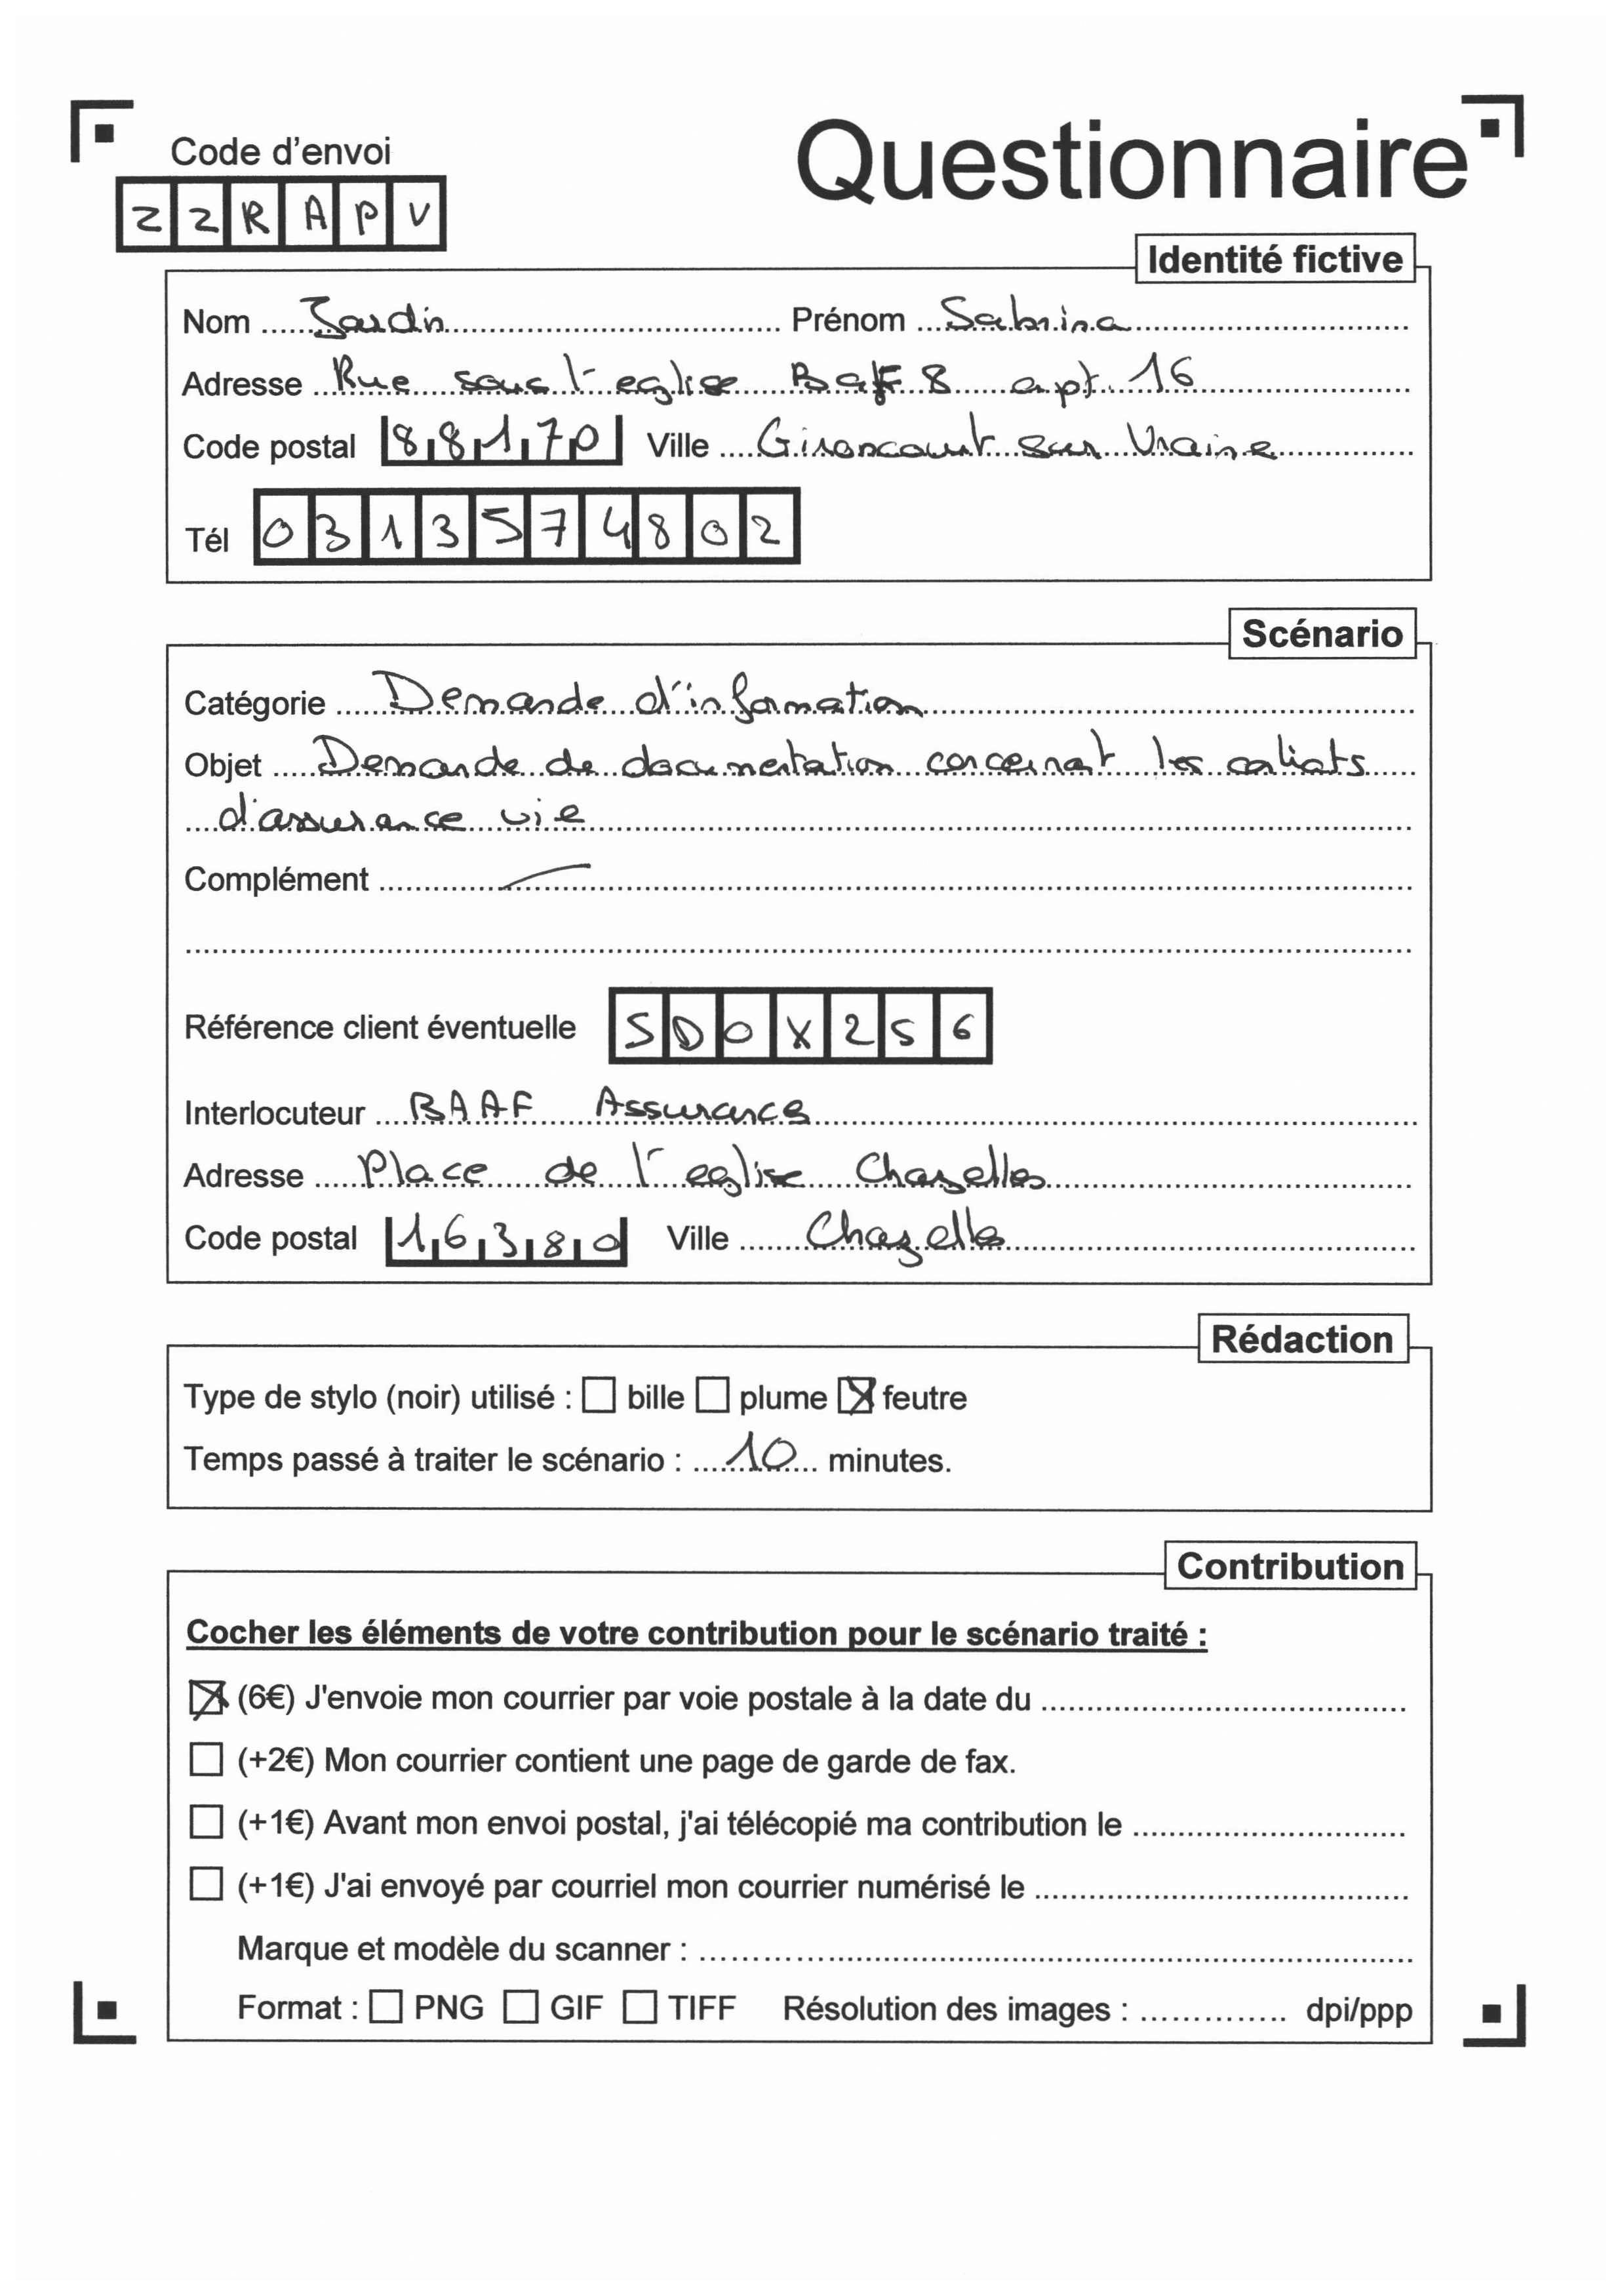 Questionnaire
Code d'envoi
ZZRAPV
Identité fictive
Nom Jardin Prénom Sabrina
Adresse Rue sous l'eglise Bat 8 apt. 16
Code postal 88170 Ville Gironcourt sur Vraine
Tél 0313574802
Scénario
Catégorie Demande d'information
Objet Demande de documentation concernat les contrats
d'assurance vie
Complément
Référence client éventuelle SDOX256
Interlocuteur BAAF Assurance
Adresse Place de l'eglise Chazelles
Code postal 16380 Ville Chazelles
Rédaction
Type de stylo (noir) utilisé : bille plume feutre
Temps passé à traiter le scénario : 10 minutes.
Contribution
Cocher les éléments de votre contribution pour le scénario traité :
(6€) J'envoie mon courrier par voie postale à la date du
(+2€) Mon courrier contient une page de garde de fax.
(+1€) Avant mon envoi postal, j'ai télécopié ma contribution le
(+1€) J'ai envoyé par courriel mon courrier numérisé le
Marque et modèle du scanner :
Format : PNG GIF TIFF Résolution des images : dpi/ppp